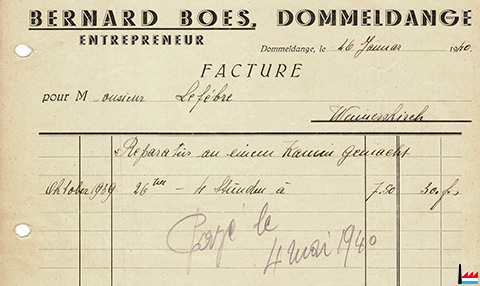 BERNARD BOES, DOMMELDANGE
ENTREPRENEUR
Dommeldange, le 26 Januar 1940.
FACTURE
pour Monsieur Lefébre
Weimerskirch
Reparatur an einem Kamin gemacht
Oktober 1939 26ten – 4 Stunden à 7.50 30.fr.
Payé le
4 mai 1940